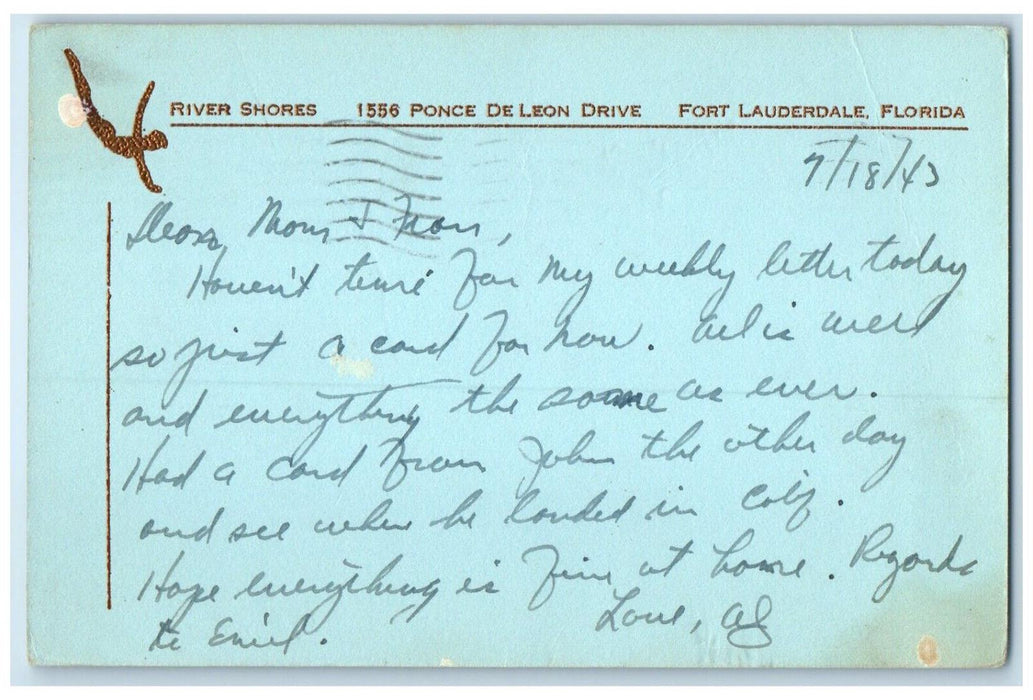 RIVER SHORES 1556 PONCE DE LEON DRIVE FORT LAUDERDALE, FLORIDA
9/18/43
Dear Mom & Fran,
Haven't time for my weekly letter today
so just a card for now. All is well
and everything the same as ever.
Had a card from John the other day
and see where he landed in Calif.
Hope everything is fine at home. Regards
to Emil. Love, Al